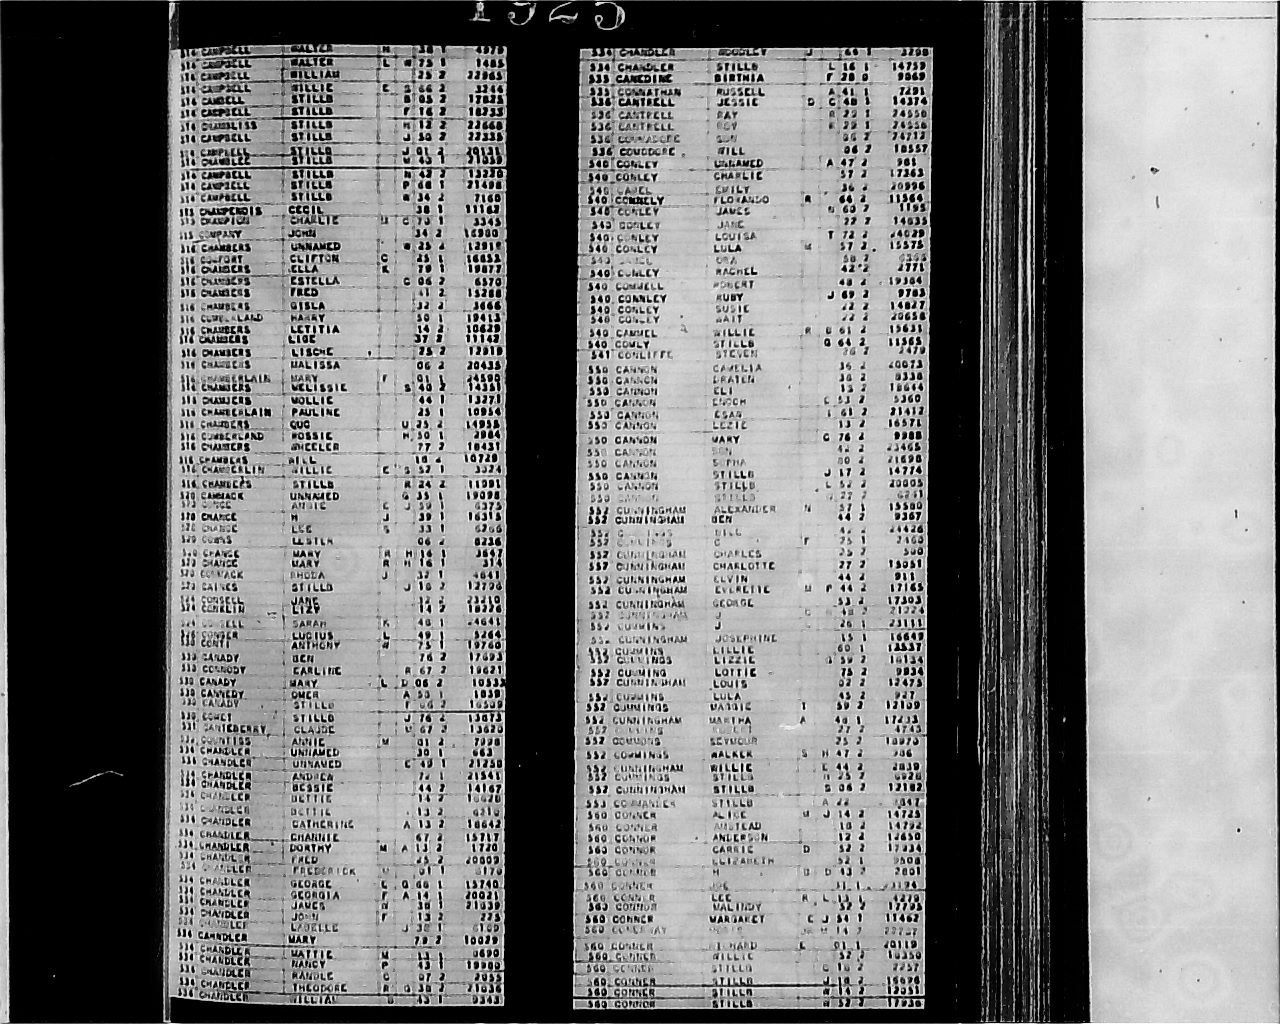 1925
514 CAMPBELL WALTER H 38 1 4979
514 CAMPBELL WALTER L W 75 1 1485
514 CAMPBELL WILLIAM 25 2 22965
514 CAMPBELL WILLIE E S 66 2 3244
514 CAMPBELL STILLB 2
514 CAMPBELL STILLB F 16 2 18233
514 CHAMBLISS STILLB H 12 2 22668
514 CAMPBELL STILLB J 50 2 27335
514 CAMPBELL STILLB J 01 2 20131
514 CHAMBLEE STILLB M 43 1 21059
514 CAMPBELL STILLB N 42 2 13220
514 CAMPBELL STILLB P 68 1 21498
514 CAMPBELL STILLB R 34 2 7160
515 CHAMPENOIS CECIL 38 1 11162
515 CHAMPION CHARLIE 1 3345
515 COMPANY JOHN 34 2
516 CHAMBERS UNNAMED W 25 2
516 COMFORT CLIFTON C 25 1 16855
516 CHAMBERS ELLA K 79 1 19877
516 CHAMBERS ESTELLA C 06 2 6570
516 CHAMBERS FRED 2 15288
516 CHAMBERS GISLA 32 2 5666
516 CUMBERLAND HARRY 50 1 19413
516 CHAMBERS LETITIA 14 2 10629
516 CHAMBERS LIGE 37 2 11142
516 CHAMBERS LISCHE 25 2
516 CHAMBERS MALISSA 06 2 20435
516 CHAMBERLAIN MARY F 01 1 24590
516 CHAMBERS MELISSIE S 40 2 14351
516 CHAMBERS MOLLIE 44 1 13271
516 CHAMBERLAIN PAULINE 25 1 10954
516 CHAMBERS QUO U 25 2 14955
516 CUMBERLAND ROSSIE H 50 1 2984
516 CHAMBERS WHEELER 77 2 18431
516 CHAMBERS WILL 10729
516 CHAMBERLIN WILLIE E S 52 1 3324
516 CHAMBERS STILLB R 24 2 11991
520 CAMMACK UNNAMED G 35 1 19098
520 ANNIE 59 1 6375
520 CHANCE H J 39 1 16315
520 CHANCE LEE S 33 1
520 LESTER 06 2 8236
520 CHANCE MARY R H 16 1 3647
520 CHANCE MARY R H 16 1 314
520 COMMACK RHODA J 32 1 4641
520 CAINES STILLB J 2 12796
524 JANE 2 23210
524 CONKLIN LIZY 14 2
524 SARAH K 48 1 24641
526 CONGER LUCIUS L 49 1 5264
530 CONTI ANTHONY W 75 1 19760
530 CANADY BEN 76 2 17693
530 CONNODY EARLINE R 67 2 19621
530 CANADY MARY L D 06 2 10533
530 CANNEDY OMER A 50 1 1839
530 CANADY STILLB F 2
530 COMET STILLB J 76 2 13073
531 CANTEBERRY CLAUDE 67 2 13620
532 COUNTISS ANNIE M 01 2 7998
534 CHANDLER UNNAMED 30 1 663
534 CHANDLER UNNAMED E 49 1 21258
534 CHANDLER ANDREA 72 1 21541
534 CHANDLER BESSIE 44 2 14167
534 CHANDLER BETTIE 14 2
534 CHANDLER BETTIE 13 2
534 CHANDLER CATHERINE A 13 2 18642
534 CHANDLER CHANNIE 67 2 15717
534 CHANDLER DORTHY M A 13 2 1720
534 CHANDLER FRED 25 2 20609
534 CHANDLER FREDERICK 01 1
534 CHANDLER GEORGE L G 68 1 15740
534 CHANDLER GEORGIA F A 14 1 20021
534 CHANDLER JAMES H 38 1 21839
534 CHANDLER JOHN F 13 2 275
534 CHANDLER LABELLE J 38 1
534 CAHNDLER MARY 79 2 10029
534 CHANDLER MATTIE M 13 1 8690
534 CHANDLER NANCY P 43 1 19980
534 CHANDLER RANDLE G 07 2 2055
534 CHANDLER THEODORE R G 38 2 21036
534 CHANDLER WILLIAM 43 1 9343
534 CHANDLER WOODLEY J 64 1 3268
534 CHANDLER STILLB L 16 1 14759
535 CANEDINE BIRTHIA F 28 0 9069
535 CONNATHAN RUSSELL A 41 1 7291
536 CANTRELL JESSIE D C 48 1 14374
536 CANTRELL RAY R 29 1 24556
536 CANTRELL ROY R 29 1 24556
536 COMMADORE SON 06 2 24712
536 COMODORE WILL 06 2 18557
540 CONLEY UNNAMED A 47 2 981
540 CONLEY CHARLIE 57 2 17363
540 EMILY 36 2 20996
540 CONNELY FLORANDO R 64 2 11564
540 CONLEY JAMES N 60 7 1195
540 CONLEY JANE 22 7 14635
540 CONLEY LOUISA T 72 2 24029
540 CONLEY LULA M 57 2 15575
540 ORA 58 2
540 CONLEY RACHEL 42 2 2771
540 ROBERT 48 2 19384
540 CONNLEY RUBY J 69 2 9783
540 CONLEY SUSIE 22 2 14827
540 CONLEY WAIT 22 2 20658
540 CAMMEL WILLIE R B 61 2 15631
540 COMLY STILLB G 64 2 11565
541 CONLIFFE STEVEN 26 2 2479
550 CANNON CAMELIA 36 2 20073
550 CANNON DRATEN 38 2 8338
550 CANNON ELI 13 2 18644
550 CANNON ENOCH E 53 2 5360
550 CANNON ESAN I 61 2 21412
550 CANNON LEZIE 13 2 16571
550 CANNON MARY C 76 2 9988
550 CANNON SON 42 2 23465
550 CANNON 80 2 21698
550 CANNON STILLB J 17 2 14774
550 CANNON STILLB L 52 2 20805
550 CANNON STILLB 27 2
552 CUNNINGHAM ALEXANDER N 57 1 15580
552 CUNNINGHAM BEN 44 2 9367
552 BILL 42 2 24426
552 C F 25 1 2160
552 CUNNINGHAM CHARLES 25 2 500
552 CUNNINGHAM CHARLOTTE 27 2 15051
552 CUNNINGHAM ELVIN 44 2 911
552 CUNNINGHAM EVERETTE M P 44 2 17165
552 CUNNINGHAM GEORGE 53 2 17303
552 CUNNINGHAM J 2
552 CUMMINS J 26 1 23111
552 CUNNINGHAM JOSEPHINE 15 1 16649
552 CUMMINS LILLIE 60 1 13537
552 CUMMINGS LIZZIE G 59 2 16134
552 CUMMING LOTTIE 75 2 9834
552 CUNNINGHAM LOUIS 02 2 12475
552 CUMMINS LULA 45 2 927
552 CUMMINGS MAGGIE T 59 2 12109
552 CUNNINGHAM MARTHA A 48 1 17233
552 CUMMINS 27 2 4743
552 COMMONS SEYMOUR 25 2 18970
552 COMMINGS WALKER S H 47 2 986
552 CUNNINGHAM WILLIE E 44 2 2839
552 CUMMINGS STILLB H 25 2 6928
552 CUNNINGHAM STILLB S 06 2 12182
553 COMMANDER STILLB A 22
560 CONNER ALICE M J 14 2 14725
560 CONNER AMSTEAD 18 2 14792
560 CONNOR ANDERSON 12 2 12650
560 CONNOR CARRIE D 52 2 17934
560 CONNER ELIZABETH 52 1 9508
560 CONNOR H D 43 2 2801
560 CONNER JOE 1
560 CONNER LEE R L 13 1 4270
560 CONNOR MALINDY 52 2 17795
560 CONNER MARGARET C J 54 1 11462
560 14 2
560 CONNER RICHARD E 01 1 20119
560 CONNER WILLIE 52 2 10350
560 CONNER STILLB G 18 2 2257
560 CONNER STILLB J 18 2 15696
560 CONNER STILLB W 14 2 12051
560 CONNOR STILLB W 52 2 17936